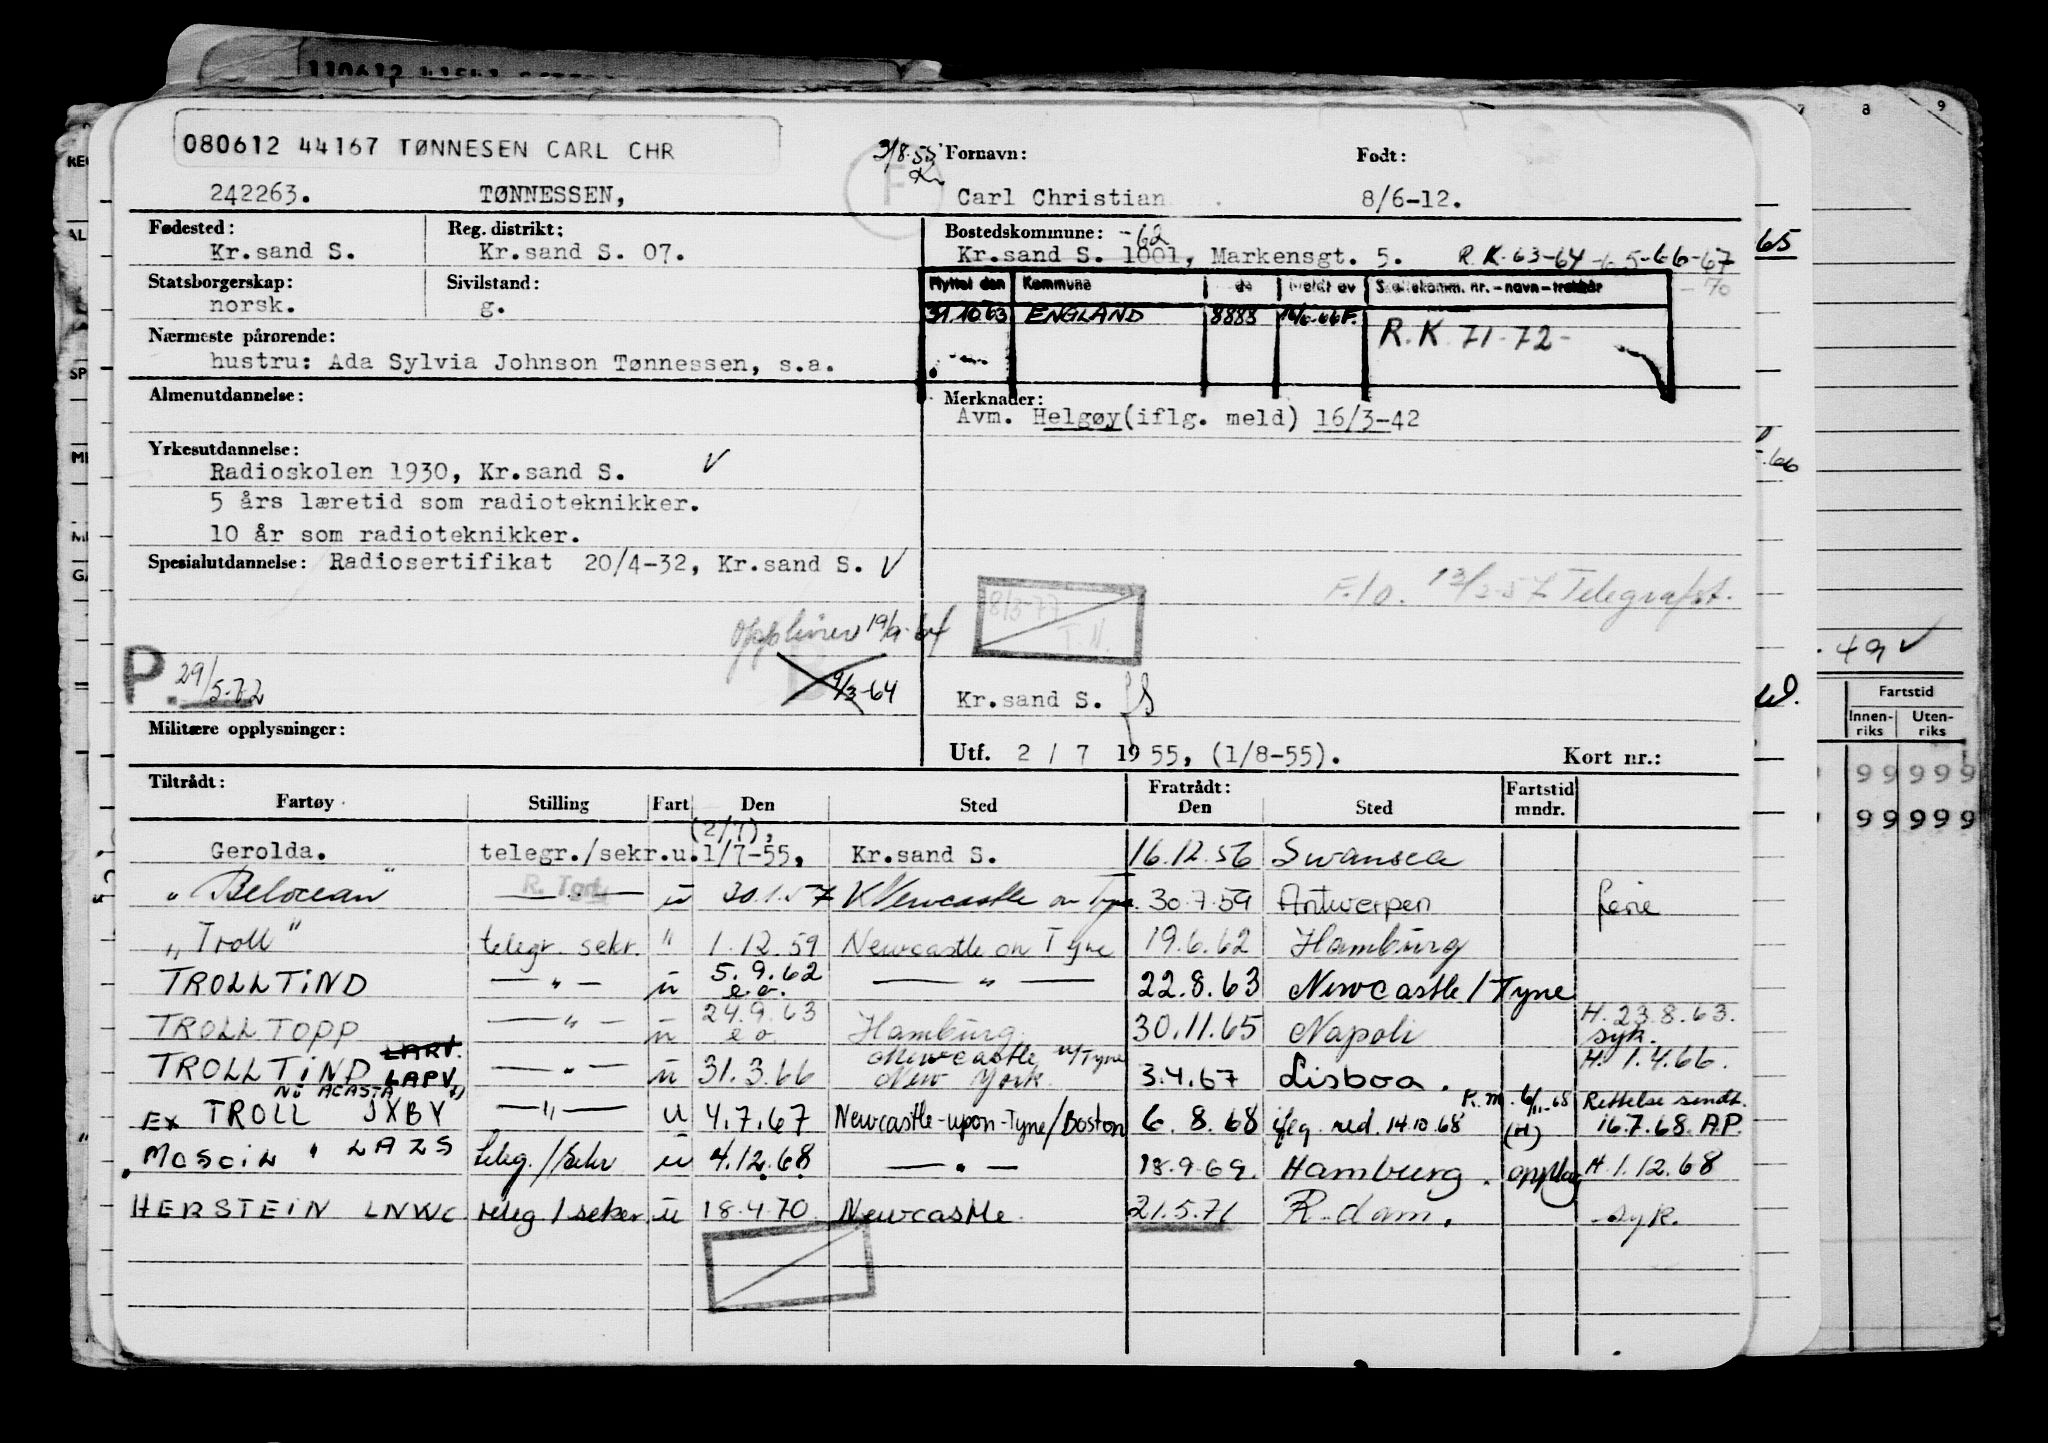 080612 44167 TØNNESEN CARL CHR
242263. TØNNESSEN,
3/8.55
F
Fornavn: Født:
Carl Christian 8/6-12.
Fødested: Reg. distrikt: Bostedskommune: -62
Kr.sand S. Kr.sand S. 07. Kr.sand S. 1001, Markensgt. 5. R.K-63-64-65-66-67
-70
Statsborgerskap: Sivilstand:
norsk. g.
Flyttet den Kommune Meldt av Skattekomm. nr. - navn - trekkår
31.10.63 ENGLAND 8888 R.K 71-72-
Nærmeste pårørende:
hustru: Ada Sylvia Johnson Tønnessen, s.a.
Almenutdannelse: Merknader:
Avm. Helgøy (iflg. meld) 16/3-42
Yrkesutdannelse:
Radioskolen 1930, Kr.sand S. V
5 års læretid som radioteknikker.
10 år som radioteknikker.
Spesialutdannelse: Radiosertifikat 20/4-32, Kr.sand S. V
8/3-77
T.N.
Telegrafist.
19/9-64
P. 29/5-72
9/3-64
Kr.sand S.
Militære opplysninger:
Utf. 2 / 7 1955, (1/8-55). Kort nr.:
Tiltrådt: Fratrådt: Fartstid
Fartøy Stilling Fart Den Sted Den Sted mndr.
(2/7),
Gerolda. telegr./sekr.u. 1/7-55, Kr.sand S. 16.12.56 Swansea
"Belocean" — R. Tort — u 30.1.57 Newcastle on Tyne 30.7.59 Antwerpen ferie
"Troll" telegr. sekr. " 1.12.59 Newcastle on Tyne 19.6.62 Hamburg
TROLLTIND — " — u 5.9.62 e.o. — " — 22.8.63 Newcastle / Tyne
TROLLTOPP — " — u 24.9.63 e.o. Hamburg 30.11.65 Napoli H. 23.8.63. syk.
TROLLTIND LARV. LAPV — " — u 31.3.66 Newcastle u/Tyne New York. 3.4.67 Lisboa. H. 1.4.66.
NÅ ACASTA
EX TROLL JXBY — " — u 4.7.67 Newcastle-upon-Tyne/Boston 6.8.68 iflg. red. 14.10.68 P.m. 6/11-68 (H) Rettelse sendt. 16.7.68. A.P.
"MOSOIL" LAZS teleg./sekr u 4.12.68 — " — 13.9.69. Hamburg. opplag H 1.12.68
HERSTEIN LNWC teleg / seker u 18.4.70 Newcastle. 21.5.71 R.dam. syk.
65
-66
49 V
Fartstid
Innen-riks Uten-riks
9 9 9 9 9
9 9 9 9 9
8 9